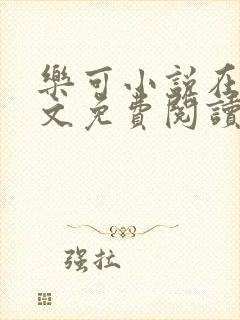 樂可小說在
文免費閱讀
强拉